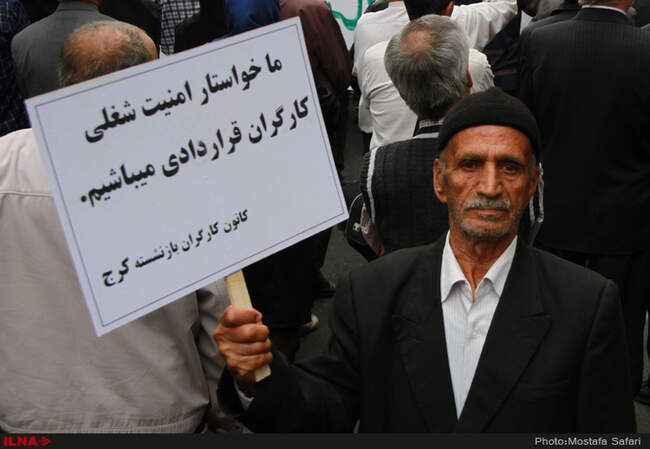 ما خواستار امنیت شغلی
کارگران قراردادی میباشیم.
کانون کارگران بازنشسته کرج
ILNA
Photo:Mostafa Safari